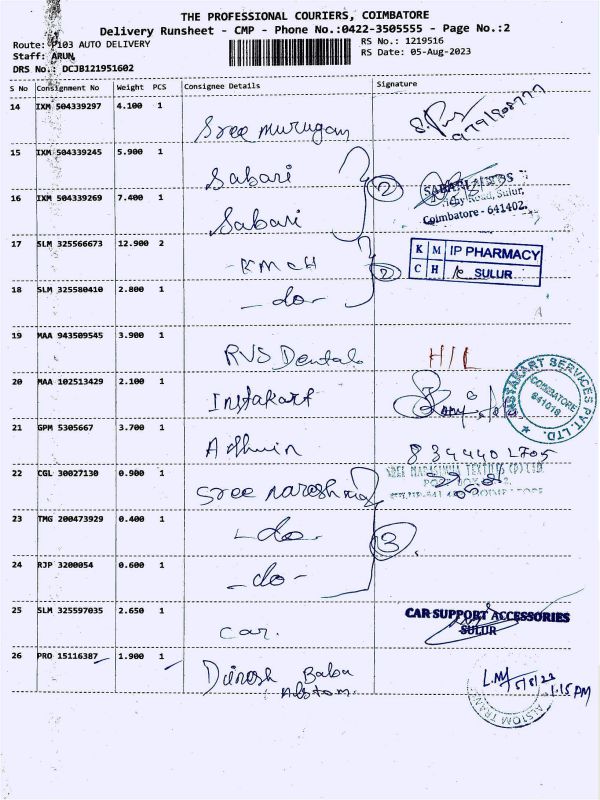 THE PROFESSIONAL COURIERS, COIMBATORE
Delivery Runsheet - CMP - Phone No.:0422-3505555 - Page No.:2
Route: P103 AUTO DELIVERY
RS No.: 1219516
Staff: ARUN
RS Date: 05-Aug-2023
DRS No.: DCJB121951602
S No Consignment No Weight PCS Consignee Details Signature
14 IXM 504339297 4.100 1 Sree murugan
15 IXM 504339245 5.900 1 Sabari
2
SABARI
Sulur,
Coimbatore - 641402.
16 IXM 504339269 7.400 1 Sabari
17 SLM 325566673 12.900 2 - KMCH
2
K M C H IP PHARMACY
SULUR
18 SLM 325580410 2.800 1 - do -
19 MAA 943509545 3.900 1 RVS Dental H/L
20 MAA 102513429 2.100 1 Instakart
INSTAKART SERVICES PVT. LTD.
COIMBATORE
641018
21 GPM 5305667 3.700 1 8344402705
22 CGL 30027130 0.900 1 Sree
SREE NARASIMHA TEXTILES (P) LTD
POST BOX
23 TMG 200473929 0.400 1 - do -
3
24 RJP 3200054 0.600 1 - do -
25 SLM 325597035 2.650 1 car.
CAR SUPPORT ACCESSORIES
SULUR
26 PRO 15116387 1.900 1 Dinesh Babu
Alstom.
1.15 PM
ALSTOM